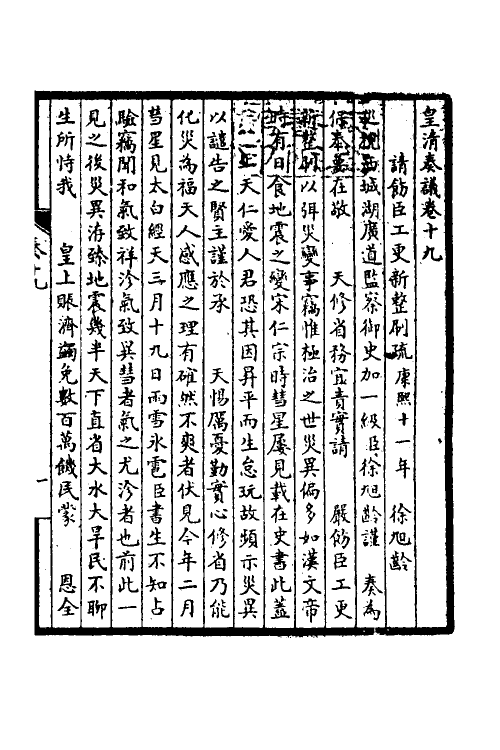 皇清奏議卷十九
請飭臣工更新整刷疏 康熙十一年 徐旭齡
巡視西城湖廣道監察御史加一級臣徐旭齡謹 奏為
在敬 天修省務宜責實請 嚴飭臣工更
新整刷以弭災變事竊惟極治之世災異偏多如漢文帝
時有日食地震之變宋仁宗時彗星屢見載在史書此蓋
上天仁愛人君恐其因昇平而生怠玩故頻示災異
以譴告之賢主謹於承 天惕厲憂勤實心修省乃能
化災為福天人感應之理有確然不爽者伏見今年二月
彗星見太白經天三月十九日雨雪氷雹臣書生不知占
驗竊聞和氣致祥沴氣致異彗者氣之尤沴者也前此一
見之後災異洊臻地震幾半天下直省大水大旱民不聊
生所恃我 皇上賑濟蠲免數百萬饑民蒙 恩全
卷十九
一